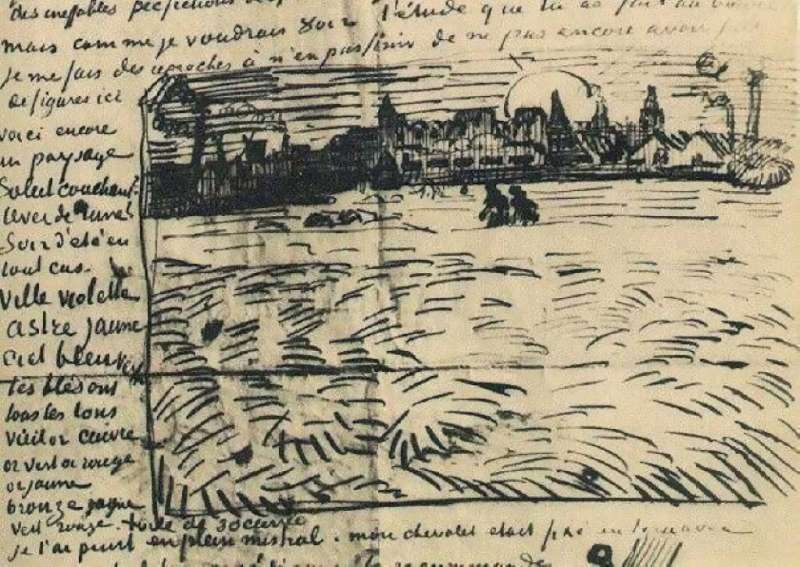 des ineffables perfections
mais comme je voudrais voir l'étude que tu as fait au
je me fais des reproches à n'en pas finir de ne pas encore avoir
de figures ici
voici encore
un paysage
Soleil couchant?
lever de lune?
Soir d'été en
tout cas.
Ville violette
astre jaune
ciel bleu vert
les blés ont
tous les tons
vieil or cuivre
or vert or rouge
or jaune
bronze jaune
vert rouge. toile de 30 carrée
je l'ai peint en plein mistral. mon chevalet etait fixé en terre avec